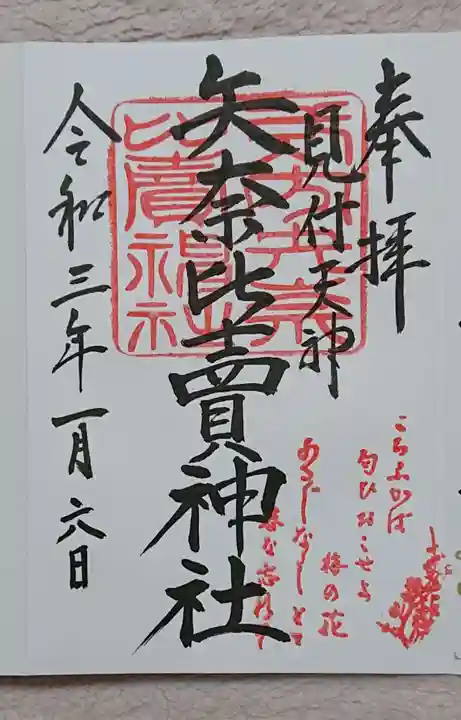 奉拝
見付天神
矢奈比賣神社
令和三年一月六日
こちふかば
匂ひおこせよ
梅の花
あるじなしとて